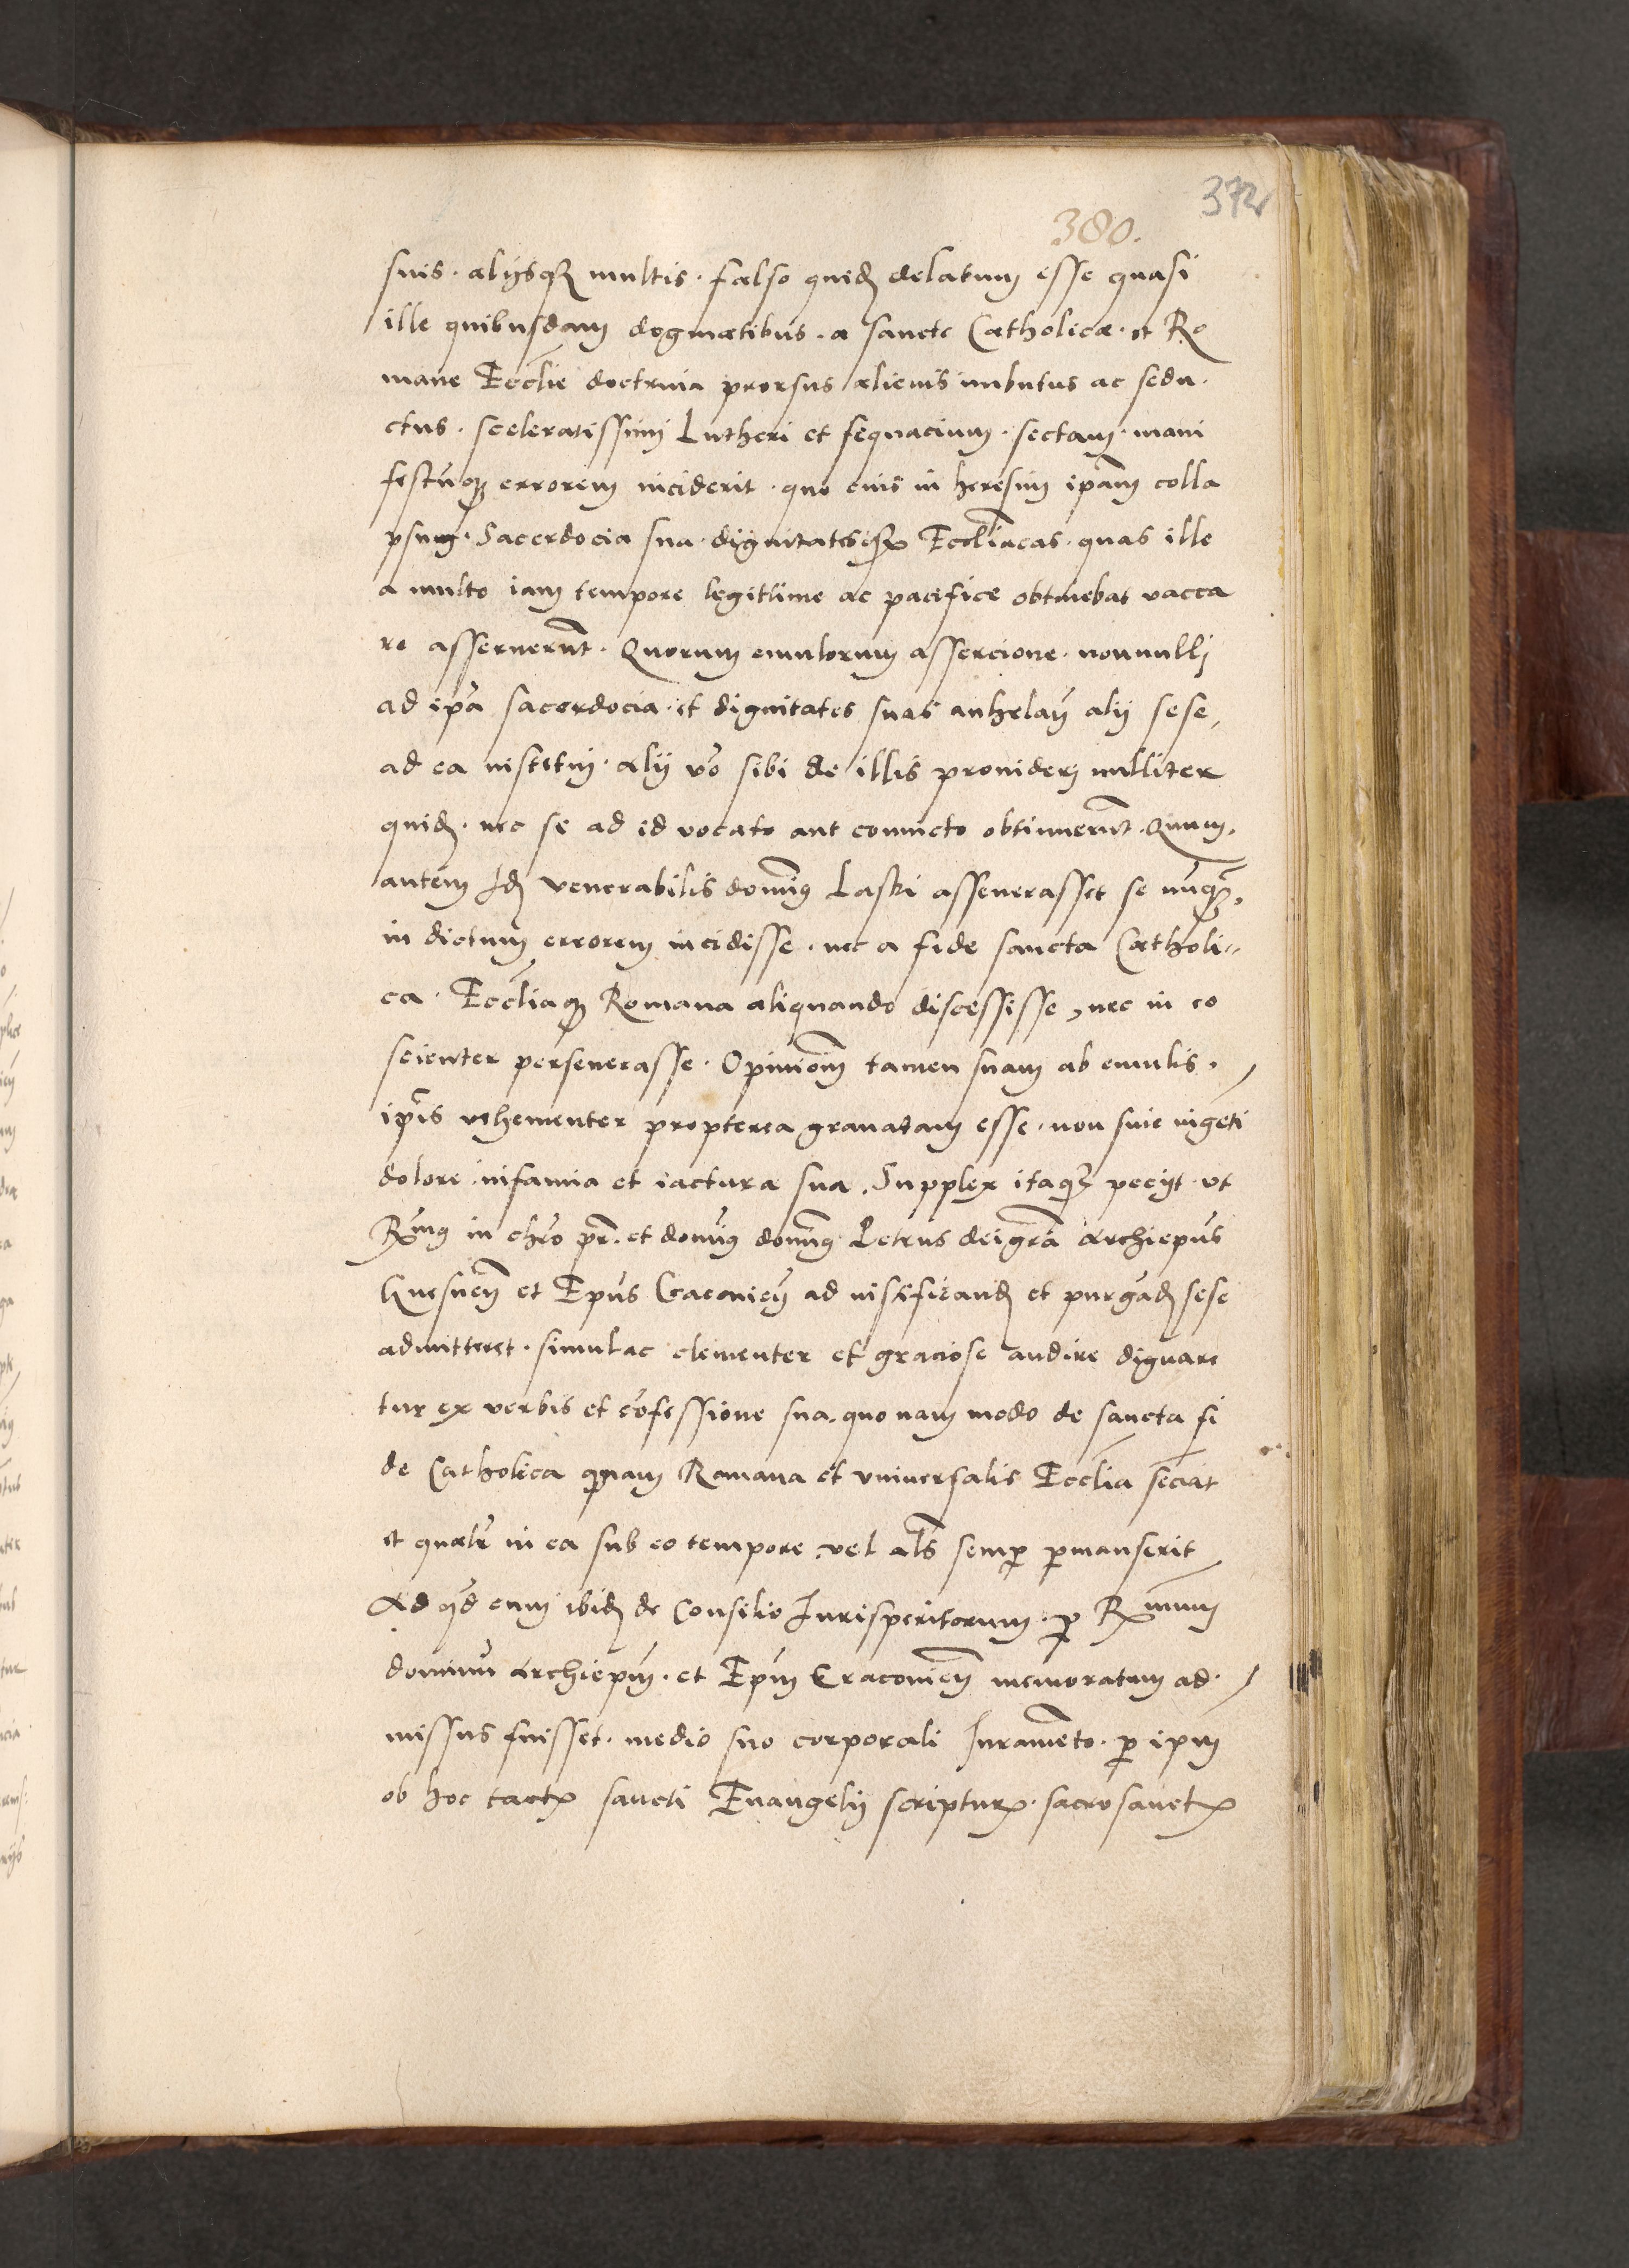 372
380.
suis · alijsq₃ multis · falso quid delatum esse quasi
ille quibusdam dogmatibus · a sancte Catholicæ · et Ro
mane Ecclie doctrina prorsus alienis imbutus ac sedu ·
ctus · sceleratissimi Lutheri et sequacium · sectam · mani
festūq₃ errorem inciderit · quo eius in heresim ipam colla
psum · Sacerdocia sua · dignitatesq₃ Eccliacas · quas ille
a multo iam tempore legittime ac pacifice obtinebat vacca
re asseruerūt · Quorum emulorum assercione · nonnulli
ad ipa sacerdocia · et dignitates suas anhelan alij sese,
ad ea institui · alij vo sibi de illis provideri nulliter
quid · nec se ad id vocato aut convicto obtinuerūt · Quum ·
autem Id venerabilis domin9 Laski asseuerasset se nunq₃,
in dictum errorem incidisse · nec a fide sancta Catholi-
ca · Eccliaq₃ Romana aliquando discessisse, nec in eo
scienter perseuerasse · Opinionem tamen suam ab emulis ·
ipis vehementer propterea grauatam esse · non sine ingeti
dolore · infamia et iactura sua · Supplex itaq₃ peciit · vt
Rmus in chro pr · et domin9 domin9 Petrus dei gra Archiepus
Gnesnen et Epus Cracouien ad iustificand et purgād sese
admitteret · simul ac clementer et graciose audire dignare
tur ex verbis et cōfessione sua · quo nam modo de sancta fi
de Catholica quam Romana et vniuersalis Ecclia senciat
et qualr in ea sub eo tempore · vel als semp pmanserit
Ad qd cum ibid de Consilio Iurisperitorum · p Rmum
dominū Archiepum · et Epum Cracouien memoratum ad ·
missus fuisset · medio suo corporali Iuramento · p ipum
ob hoc tactꝝ sancti Euangelij scripturꝝ · sacrosanctꝝ